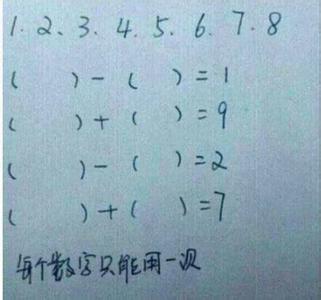 1. 2、3. 4. 5. 6. 7. 8
(   ) - (   ) = 1
(   ) + (   ) = 9
(   ) - (   ) = 2
(   ) + (   ) = 7
每个数字只能用一次